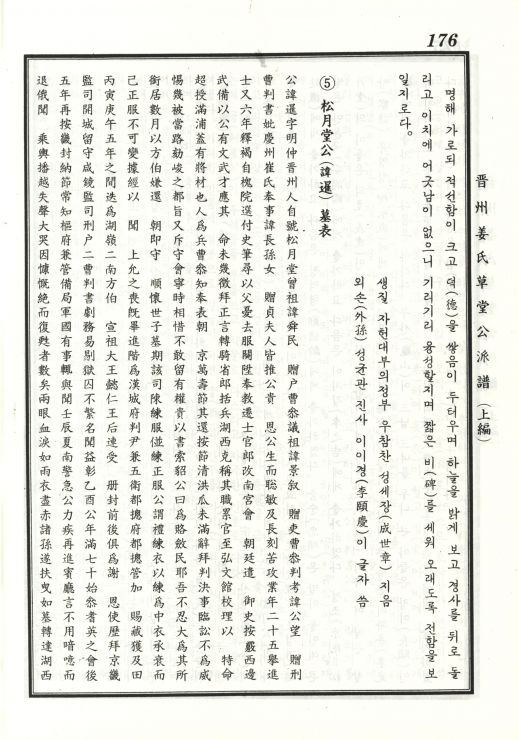 176
晋州姜氏草堂公派譜(上編)
명해 가로되 적선함이 크고 덕(德)을 쌓음이 두터우며 하늘을 밝게 보고 경사를 뒤로 돌
리고 이치에 어긋남이 없으니 기리기리 융성할지며 짧은 비(碑)를 세워 오래도록 전함을 보
일지로다.
⑤ 松月堂公(諱暹) 墓表
생질 자헌대부의정부 우참찬 성세장(成世章) 지음
외손(外孫) 성균관 진사 이이경(李頤慶)이 글자 씀
公諱暹字明仲晋州人自號松月堂曾祖諱舜民 贈户曹叅議祖諱景叙 贈吏曹叅判考諱公望 贈刑
曹判書妣慶州崔氏奉事諱長孫女 贈貞夫人皆推公貴 恩公生而聡敏及長刻苦攻業年二十五舉進
士又六年釋褐自槐院選付史筆尋以父憂去服闋陞奉教遷士官郎改南宮會 朝廷遣 御史按嚴西邊
武備以公有文武才應其 命未幾徴拜正言轉騎省郎括兵湖西克稱其職累官至弘文館校理以 特命
超授滿浦蓋有將材也人爲兵曹叅知奉表朝 京萬壽節其還按節清洪瓜未滿辭拜判決事臨訟不爲威
惕幾被當路劾峻之都旨又斥守會寧時相惜不敢留有權貴以書索貂公曰爲賂斂民耶吾不忍大爲其所
銜居數月以方伯嫌還 朝即守 順懷世子墓期該司陳練服並練正服公謂禮練衣以練爲中衣承衰而
己正服不可變據經以 聞 上允之喪旣畢進階爲漢城府判尹兼五衛都摠府都摠管加 賜藏獲及田
丙寅庚午五年之間迭爲湖嶺二南方伯 宣祖大王懿仁王后連受 册封前後俱爲謝 恩使歴拜京畿
監司開城留守咸鏡監司刑户二曹判書劇務易剔獄囚不繁名聞益彰乙酉公年滿七十始叅耆英之會後
五年再按畿封納節常知樞府兼管備局軍國有事輒與聞壬辰夏南警急公力疾再進賓廳言不用喑噫而
退俄聞 乘輿播越失聲大哭因慷慨絶而復甦者數矣兩眼血淚如雨衣盡赤諸孫遂扶曳如墓轉達湖西